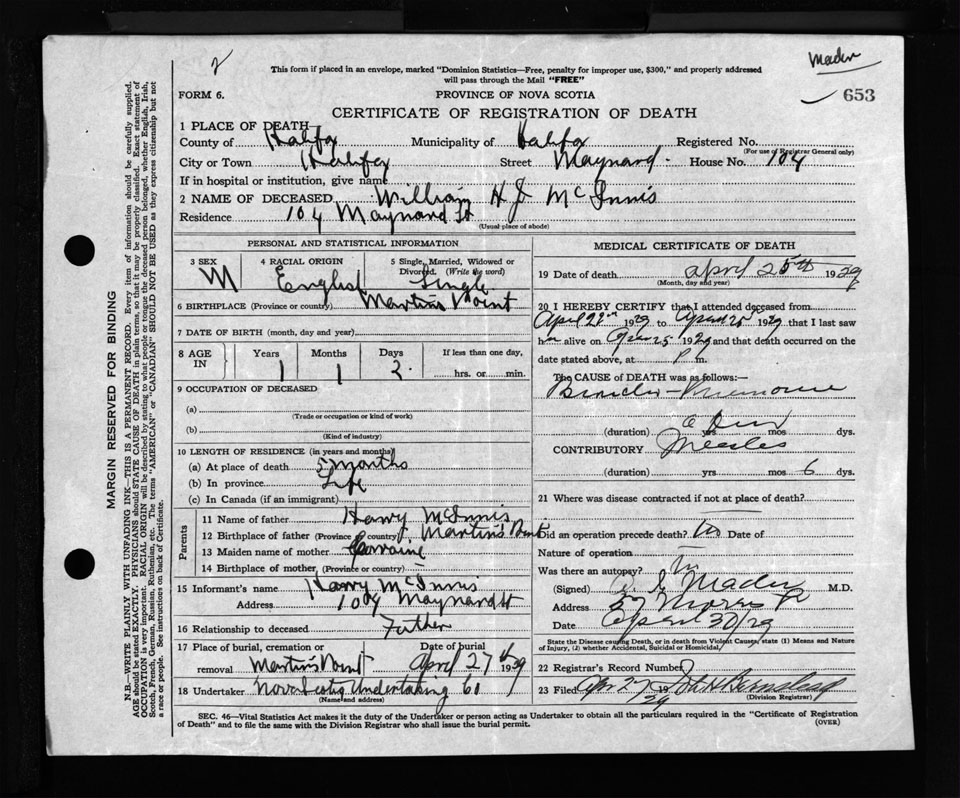 2
Mader
This form if placed in an envelope, marked "Dominion Statistics—Free, penalty for improper use, $300," and properly addressed
will pass through the Mail "FREE"
653
FORM 6.
PROVINCE OF NOVA SCOTIA
CERTIFICATE OF REGISTRATION OF DEATH
1 PLACE OF DEATH
County of Halifax Municipality of Halifax Registered No.
(For use of Registrar General only)
City or Town Halifax Street Maynard House No. 104
If in hospital or institution, give name
2 NAME OF DECEASED William H J McInnis
Residence 104 Maynard St
(Usual place of abode)
PERSONAL AND STATISTICAL INFORMATION
3 SEX M 4 RACIAL ORIGIN English 5 Single, Married, Widowed or Divorced. (Write the word) Single
6 BIRTHPLACE (Province or country) Martins Point
7 DATE OF BIRTH (month, day and year)
8 AGE IN Years 1 Months 1 Days 2 If less than one day, hrs. or min.
9 OCCUPATION OF DECEASED
(a)
(Trade or occupation or kind of work)
(b)
(Kind of industry)
10 LENGTH OF RESIDENCE (in years and months)
(a) At place of death 5 months
(b) In province Life
(c) In Canada (if an immigrant)
Parents
11 Name of father Harry McInnis
12 Birthplace of father (Province or country) Martins Point
13 Maiden name of mother
14 Birthplace of mother (Province or country)
15 Informant's name Harry McInnis
Address 104 Maynard St
16 Relationship to deceased Father
17 Place of burial, cremation or removal Martins Point Date of burial April 27th 1929
18 Undertaker Nova Scotia Undertaking Co
(Name and address)
MEDICAL CERTIFICATE OF DEATH
19 Date of death April 25th 1929
(Month, day and year)
20 I HEREBY CERTIFY that I attended deceased from
April 22 1929 to April 25 1929 that I last saw
h alive on 25 1929 and that death occurred on the
date stated above, at P m.
The CAUSE of DEATH was as follows:—
(duration) yrs mos dys.
CONTRIBUTORY Measles
(duration) yrs mos 6 dys.
21 Where was disease contracted if not at place of death?
Did an operation precede death? No Date of
Nature of operation
Was there an autopsy?
(Signed) Mader M.D.
Address 57 Morris
Date April 30/29
State the Disease causing Death, or in death from Violent Causes, state (1) Means and Nature
of Injury, (2) whether Accidental, Suicidal or Homicidal.
22 Registrar's Record Number
23 Filed Apr 27 1929
(Division Registrar)
SEC. 46—Vital Statistics Act makes it the duty of the Undertaker or person acting as Undertaker to obtain all the particulars required in the "Certificate of Registration
of Death" and to file the same with the Division Registrar who shall issue the burial permit.
(OVER)
MARGIN RESERVED FOR BINDING
N.B.—WRITE PLAINLY WITH UNFADING INK—THIS IS A PERMANENT RECORD. Every item of information should be carefully supplied.
AGE should be stated EXACTLY. PHYSICIANS should STATE CAUSE OF DEATH in plain terms, so that it may be properly classified. Exact statement of
OCCUPATION is very important. RACIAL ORIGIN will be described by stating to what people or tongue the deceased person belonged, whether English, Irish,
Scotch, French, German, Russian, Ruthenian, etc. The terms "AMERICAN" or "CANADIAN" SHOULD NOT BE USED as they express citizenship but not
a race or people. See instructions on back of Certificate.